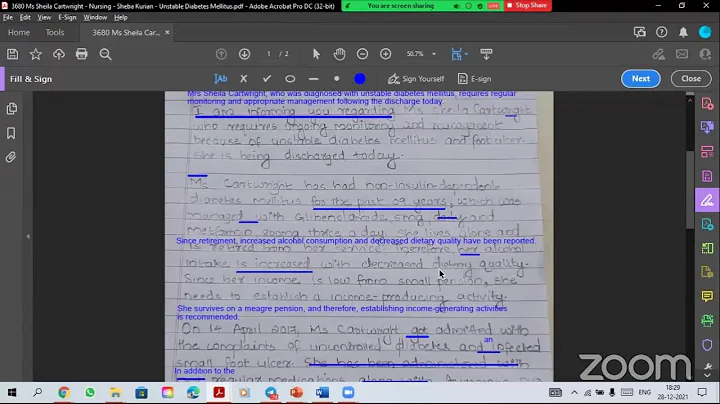 3680 Ms Sheila Cartwright - Nursing - Sheba Kurian - Unstable Diabetes Mellitus.pdf - Adobe Acrobat Pro DC (32-bit)
You are screen sharing
Stop Share
File Edit View E-Sign Window Help
Home Tools 3680 Ms Sheila Car... ×
1 / 2
50.7%
Fill & Sign
Ab
Sign Yourself
E-sign
Next
Close
Mrs Sheila Cartwright, who was diagnosed with unstable diabetes mellitus, requires regular
monitoring and appropriate management following the discharge today.
I am informing you regarding Ms Sheila Cartwright
who requires ongoing monitoring and management
because of unstable diabetes mellitus and foot ulcer.
She is being discharged today.
Ms Cartwright has had non-insulin-dependent
diabetes mellitus for the past 09 years, which was
managed with Glibenclamide, 5mg, daily and
metformin 500mg three a day. She lives alone and
Since retirement, increased alcohol consumption and decreased dietary quality have been reported.
is retired from her service. Therefore her alcohol
intake is increased with decreased dietary quality.
Since her income is low from small pension, she
needs to establish a income-producing activity.
She survives on a meagre pension, and therefore, establishing income-generating activities
is recommended.
On 14 April 2017, Ms Cartwright got admitted with
an
the complaints of uncontrolled diabetes and infected
small foot ulcer. She has been administered with
In addition to the
regular medications along with
zoom
ENG
18:29
28-12-2021